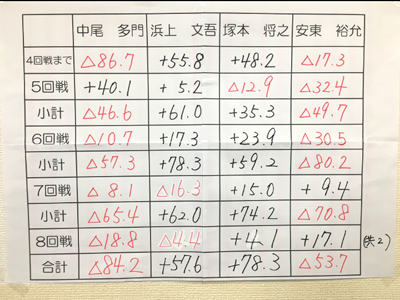 中尾 多門 浜上 文吾 塚本 将之 安東 裕允
4回戦まで △86.7 +55.8 +48.2 △17.3
5回戦 +40.1 + 5.2 △12.9 △32.4
小計 △46.6 +61.0 +35.3 △49.7
6回戦 △10.7 +17.3 +23.9 △30.5
小計 △57.3 +78.3 +59.2 △80.2
7回戦 △ 8.1 △16.3 +15.0 + 9.4
小計 △65.4 +62.0 +74.2 △70.8
8回戦 △18.8 △4.4 +4.1 +17.1 (失2)
合計 △84.2 +57.6 +78.3 △53.7